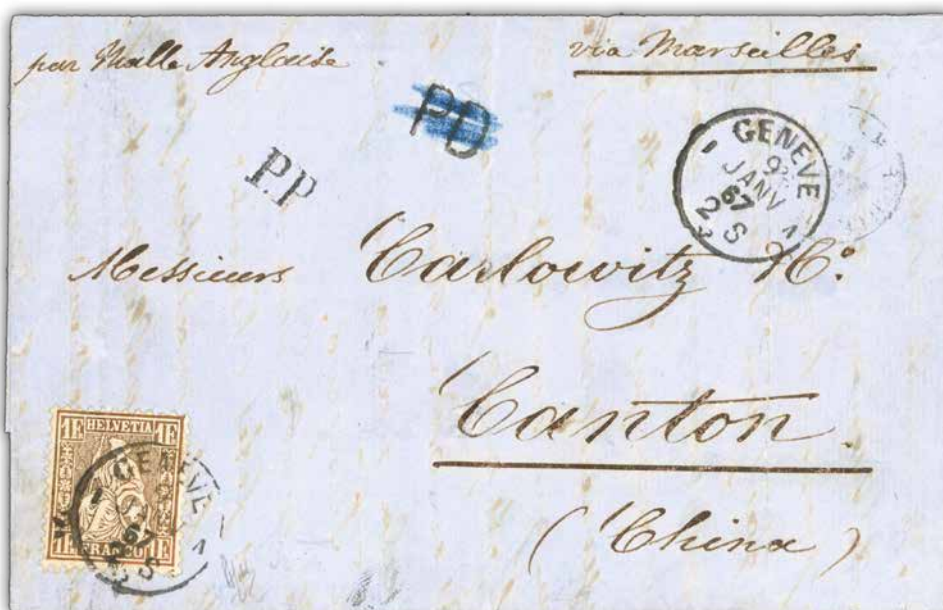 par Malle Anglaise
via Marseilles
PD
P.P
GENEVE
9
JANV
67
2 S
Messieurs Carlowitz & Co:
Canton
(China)
1F HELVETIA 1F
GENEVE
67
S
1F FRANCO 1F